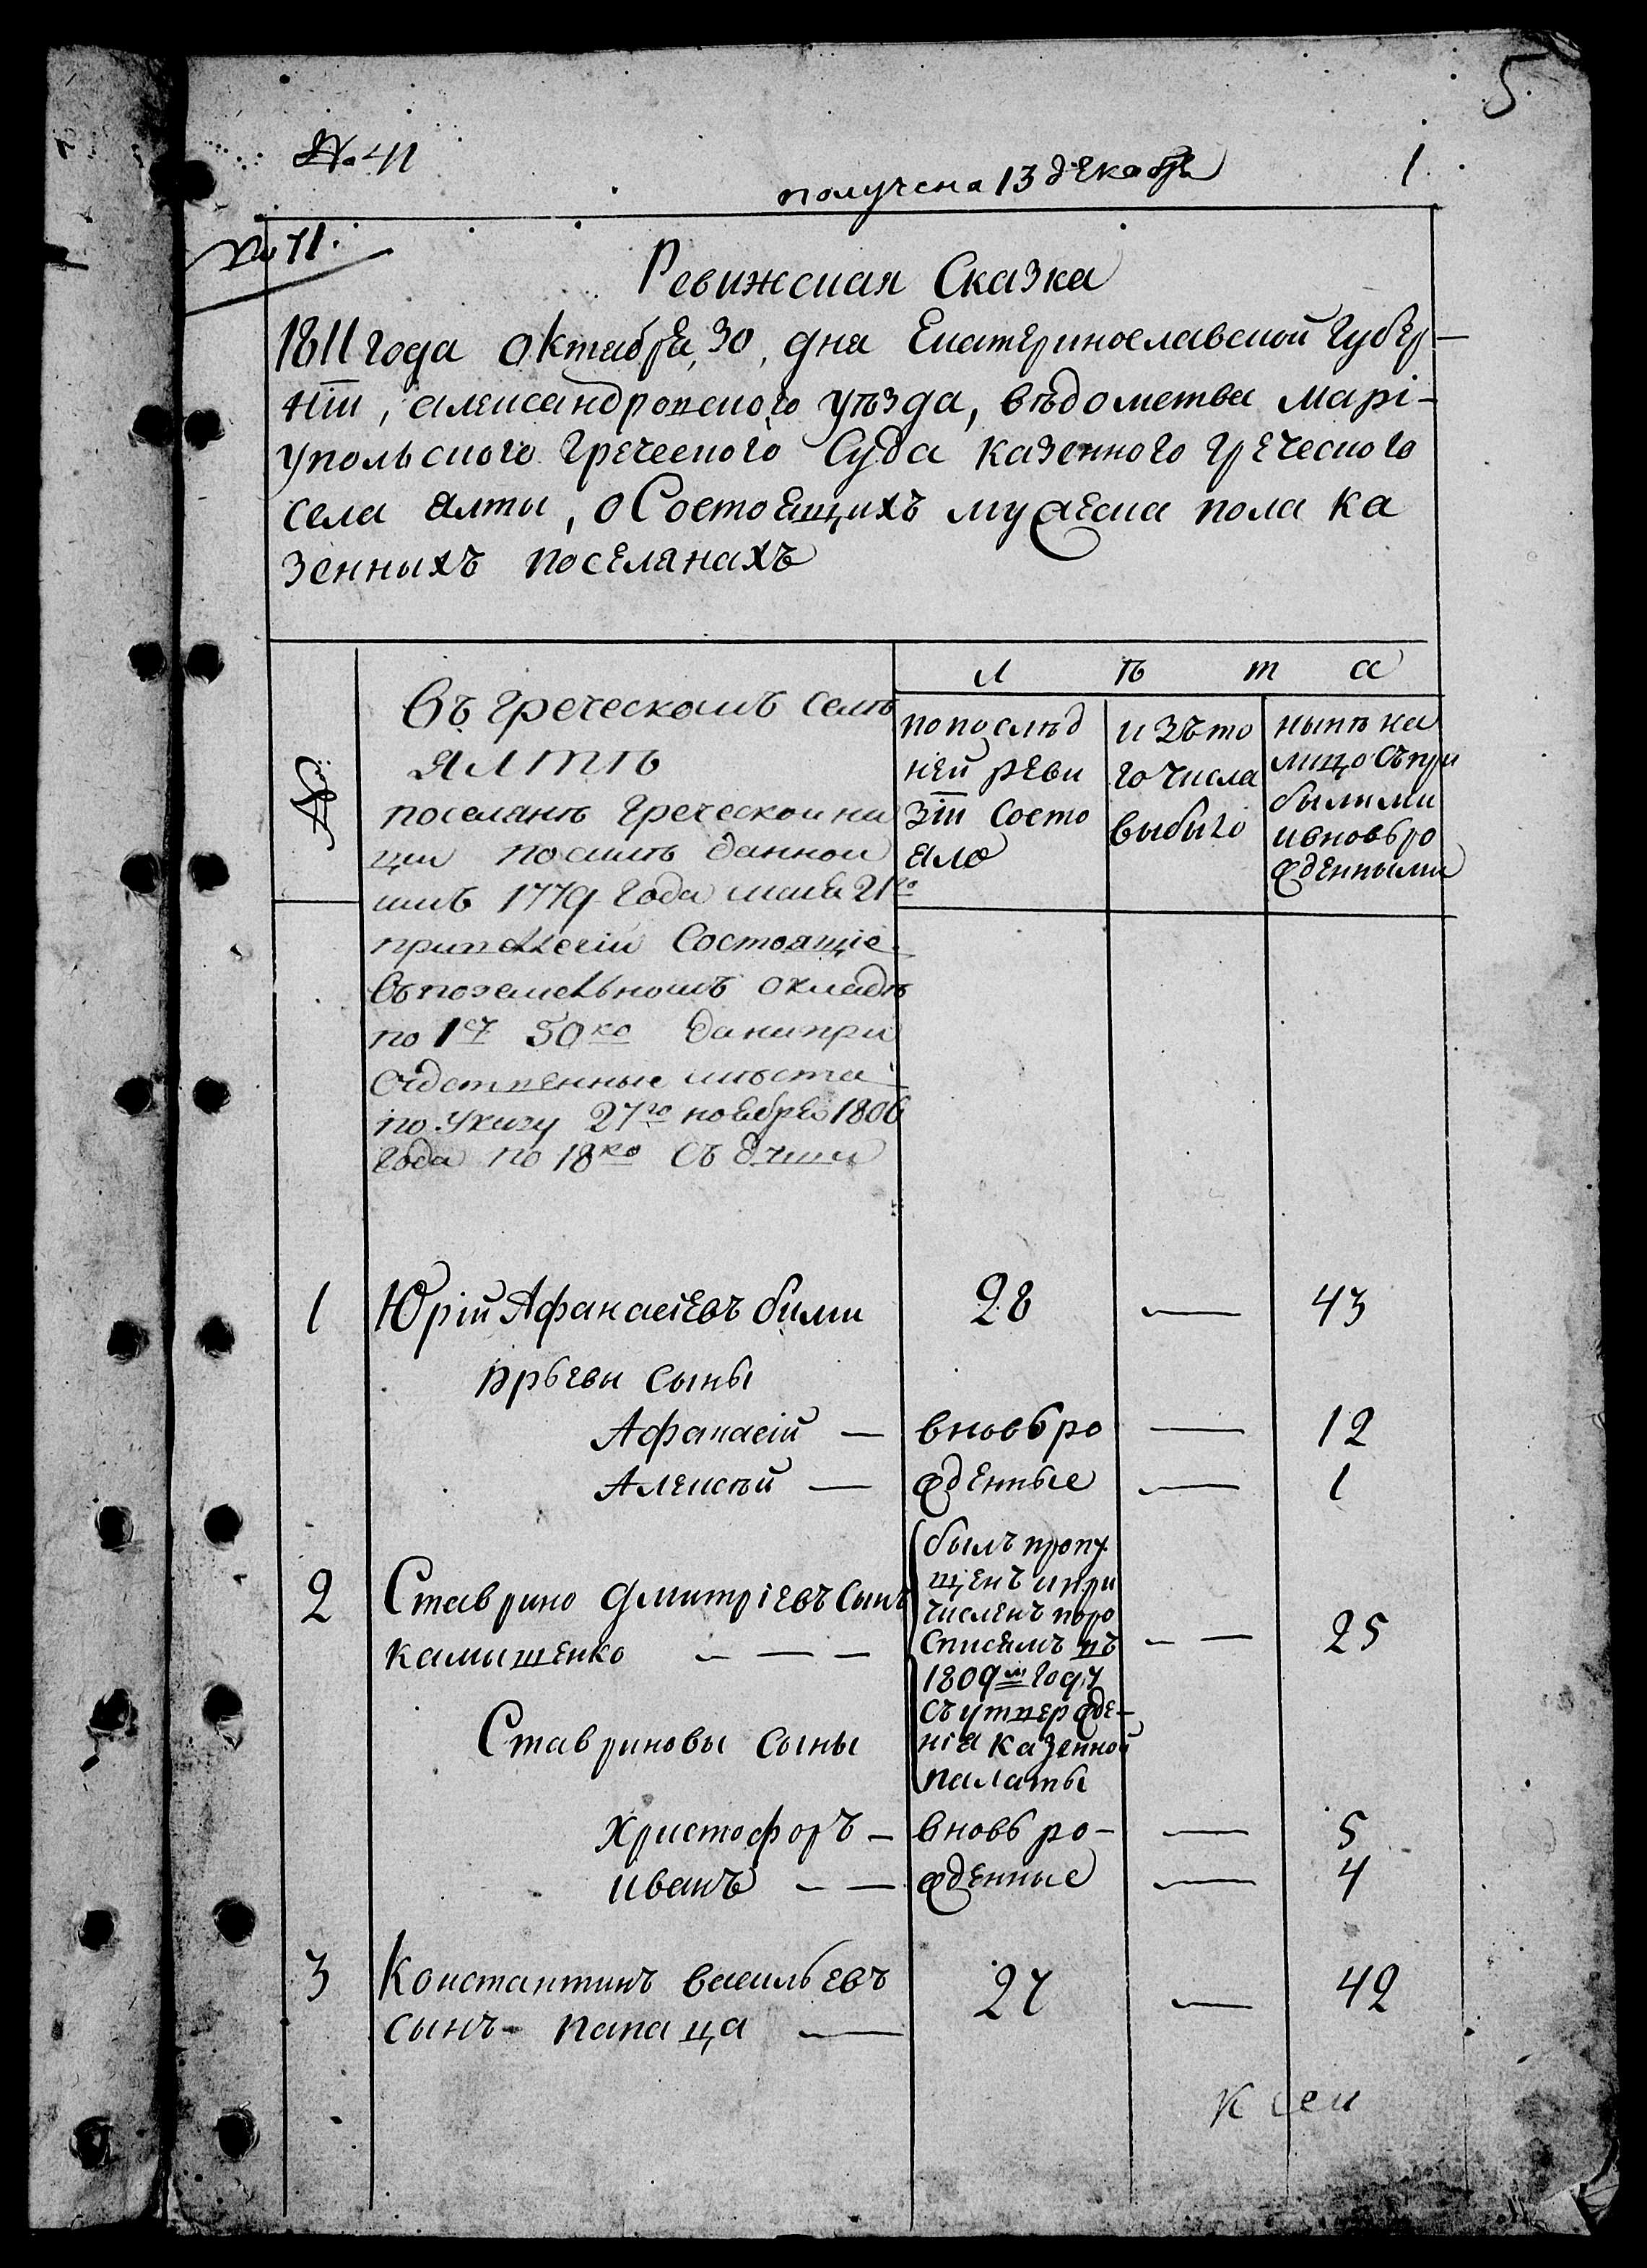 5
№ 41
получена 13 декабря
1
№ 71.
Ревижская Сказка
1811 года октября, 30, дня Екатеринославской Губер-
нїи, александровского уѣзда, вѣдомства марі-
упольского греческого Суда казенного греческого
села Ялты, о Состоящихъ мужеска пола ка
зенныхъ поселянахъ
№
Въ греческомъ селѣ
Ялтѣ
поселянъ греческой на
ции по силѣ данной
имъ 1779 года маия 21го
привилегіи Состоящіе
въ поземельномъ окладѣ
по 1й 50 ко да на при
Судственные мѣста
по Указу 27го ноября 1806
года по 18 ко съ души
Л ѣ т а
по послѣд
ней реви
зїи Состо
яло
изъ то
го числа
выбыло
нынѣ на
лицо съ при
былыми
и вновь ро
жденными
1 Юрій Афанасіевъ били 28 — 43
Юрьевы сыны
Афанасій — вновь ро — 12
Алексѣй — жденные — 1
2 Ставрино Дмитріевъ сынъ
камышенко — — —
былъ пропу
щенъ и при
численъ по ро
списямъ въ
1809м году
съ утвержде-
нія казенной
палаты
— — 25
Ставриновы сыны
Христофоръ — вновь ро- — 5
иванъ — — жденные — 4
3 Константинъ васильевъ
сынъ - папаца — 27 — 42
К сеи